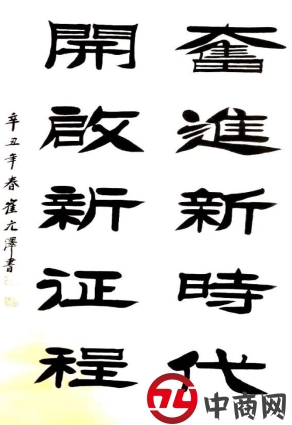 奮進新時代
開啟新征程
辛丑年春崔允澤書
中商网